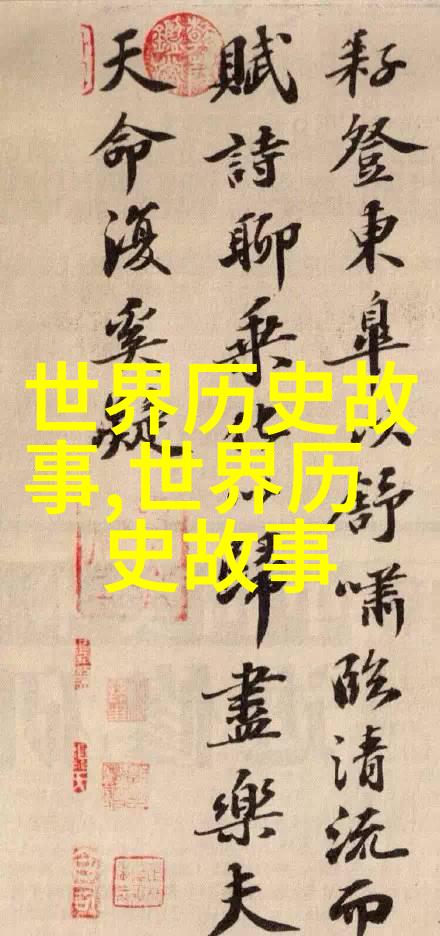 耔登東皋以舒嘯臨清流而
賦詩聊乘化以歸盡樂夫
天命復奚疑
世界历史故
事,世界历
史故事